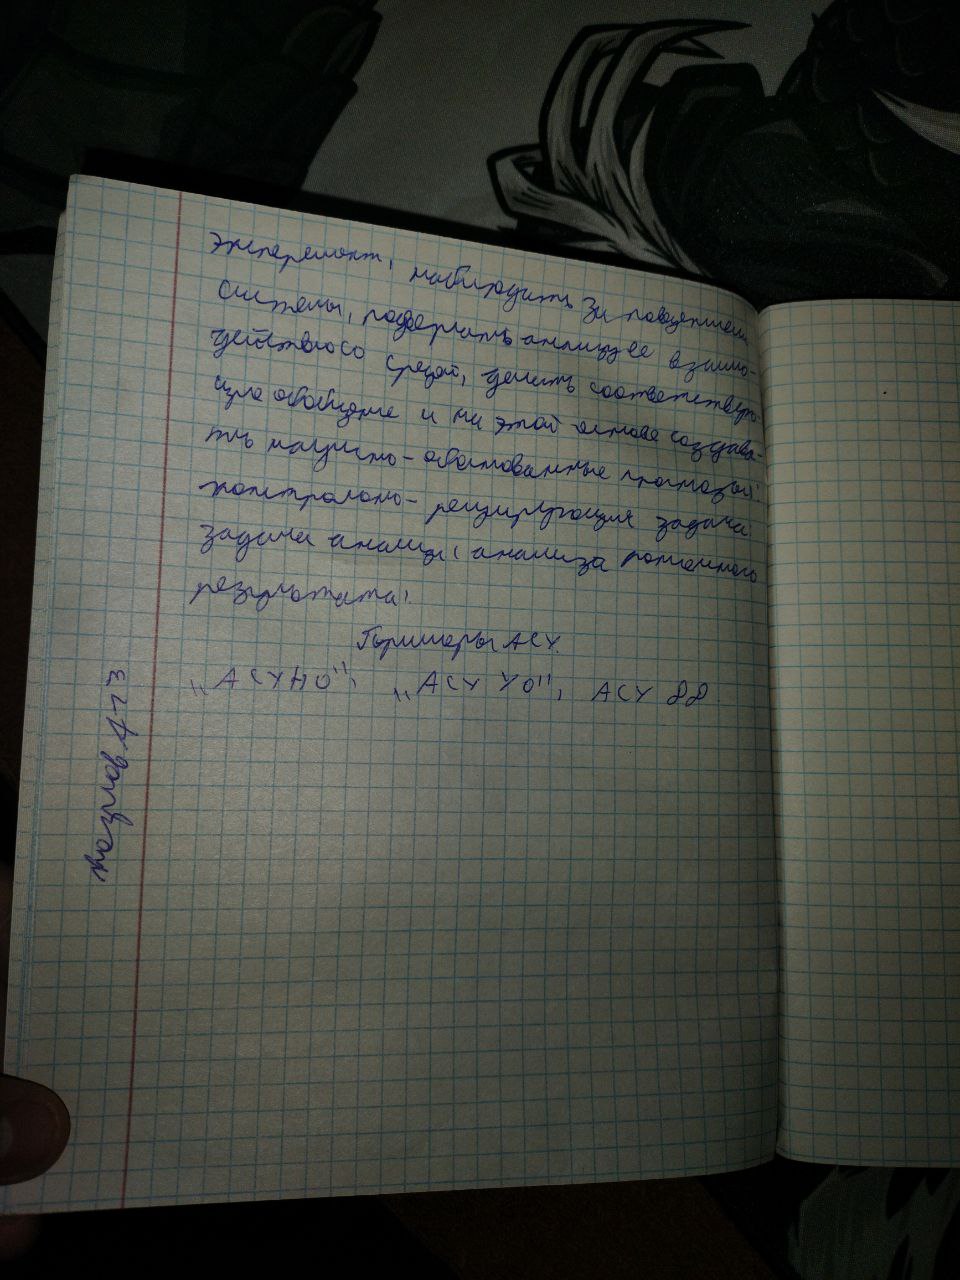 Эксперемент, наблюдать за поведением
системы, подвергать анализу ее взаимо-
действ со средой, делать соответствую-
щие обобщение и на этой основе создава-
ть научно-обоснованные прогнозы:
контрольно- задача
задача анализа: анализа
результата.
АСУ.
"АСУНО", "АСУ УО", АСУ ДД.
А-13